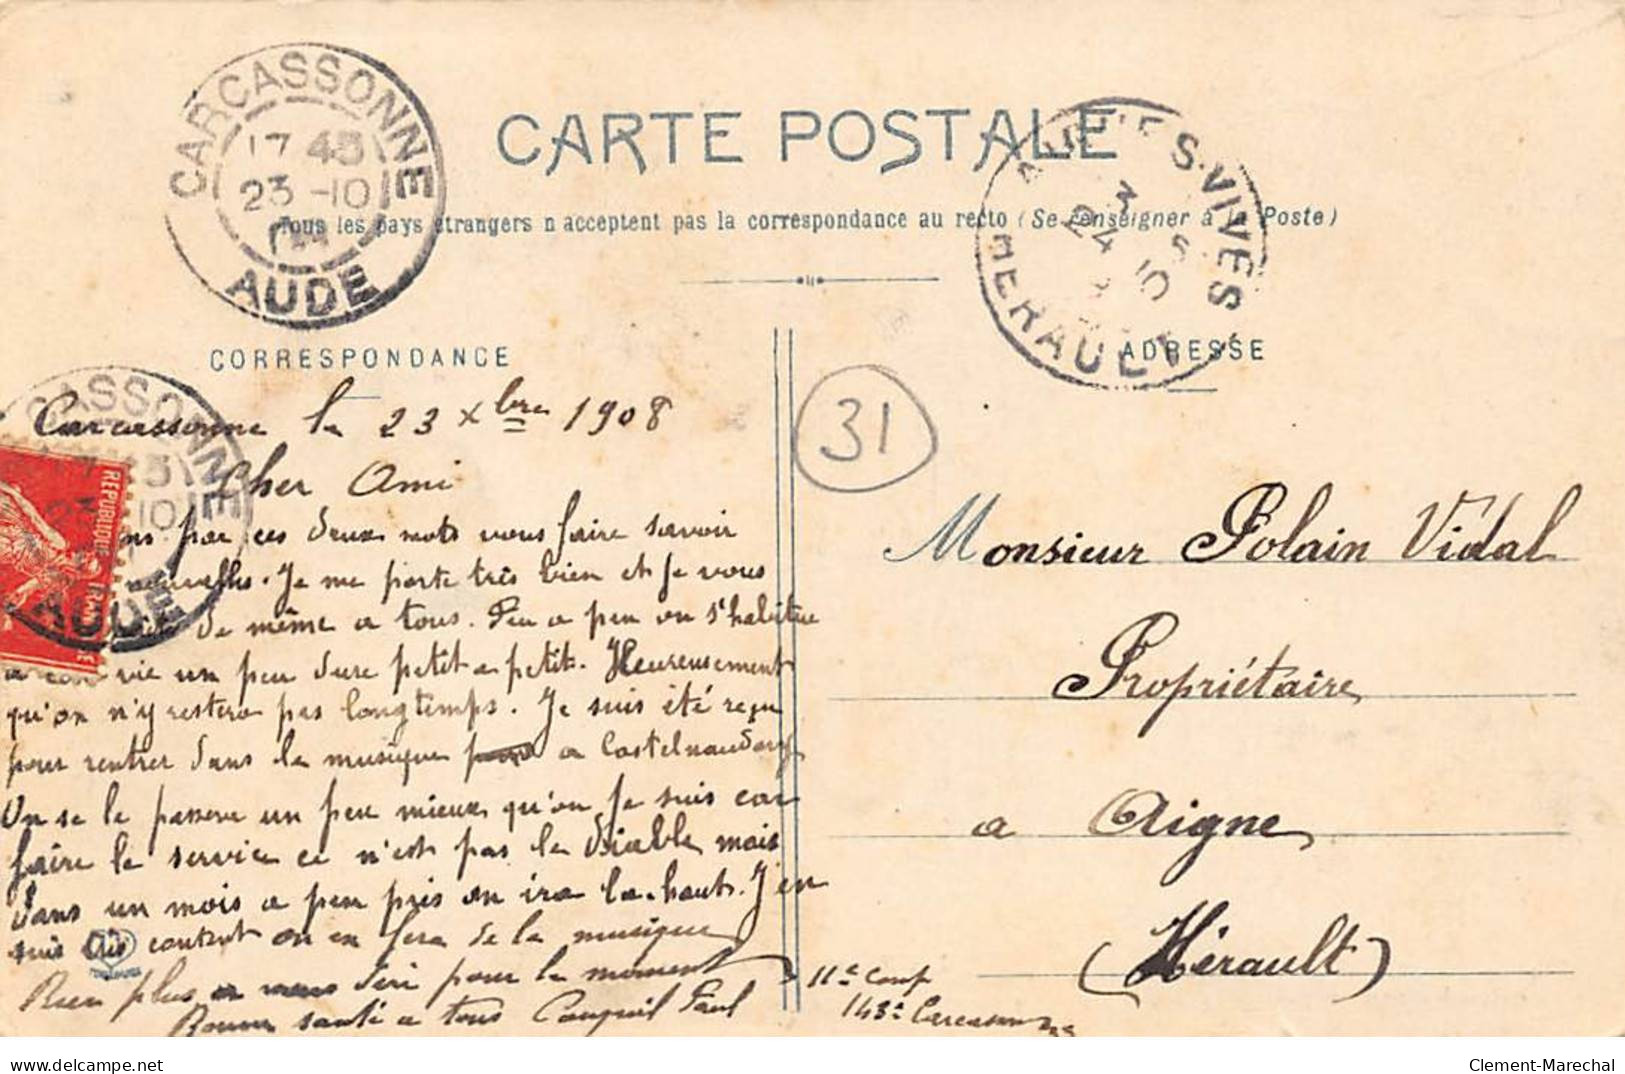 CARCASSONNE
17 45
23 -10
AUDE
CARTE POSTALE
S-VIVES
24 10
HERAULT
Tous les pays étrangers n'acceptent pas la correspondance au recto (Se renseigner à la Poste)
CORRESPONDANCE
Carcassonne le 23 xbre 1908
Cher Ami
par ces deux mots vous faire savoir
nouvelles. Je me porte très bien et je vous
de même a tous. Peu a peu on s'habitue
a vie un peu dure petit a petit. Heureusement
qu'on n'y restera pas longtemps. Je suis été reçu
pour rentrer dans la musique a Castelnaudary
On se la passera un peu mieux qu'on je suis car
faire le service ce n'est pas le diable mais
dans un mois a peu pris on ira la-haut. J'en
suis content on en fera de la musique
Rien plus a vous dire pour le moment
Bonne santé a tous Paul
11e Comp
143e Carcassonne
CARCASSONNE
AUDE
REPUBLIQUE FRANCAISE
31
ADRESSE
Monsieur Polain Vidal
Propriétaire
a Aigne
(Hérault)
Clement-Marechal